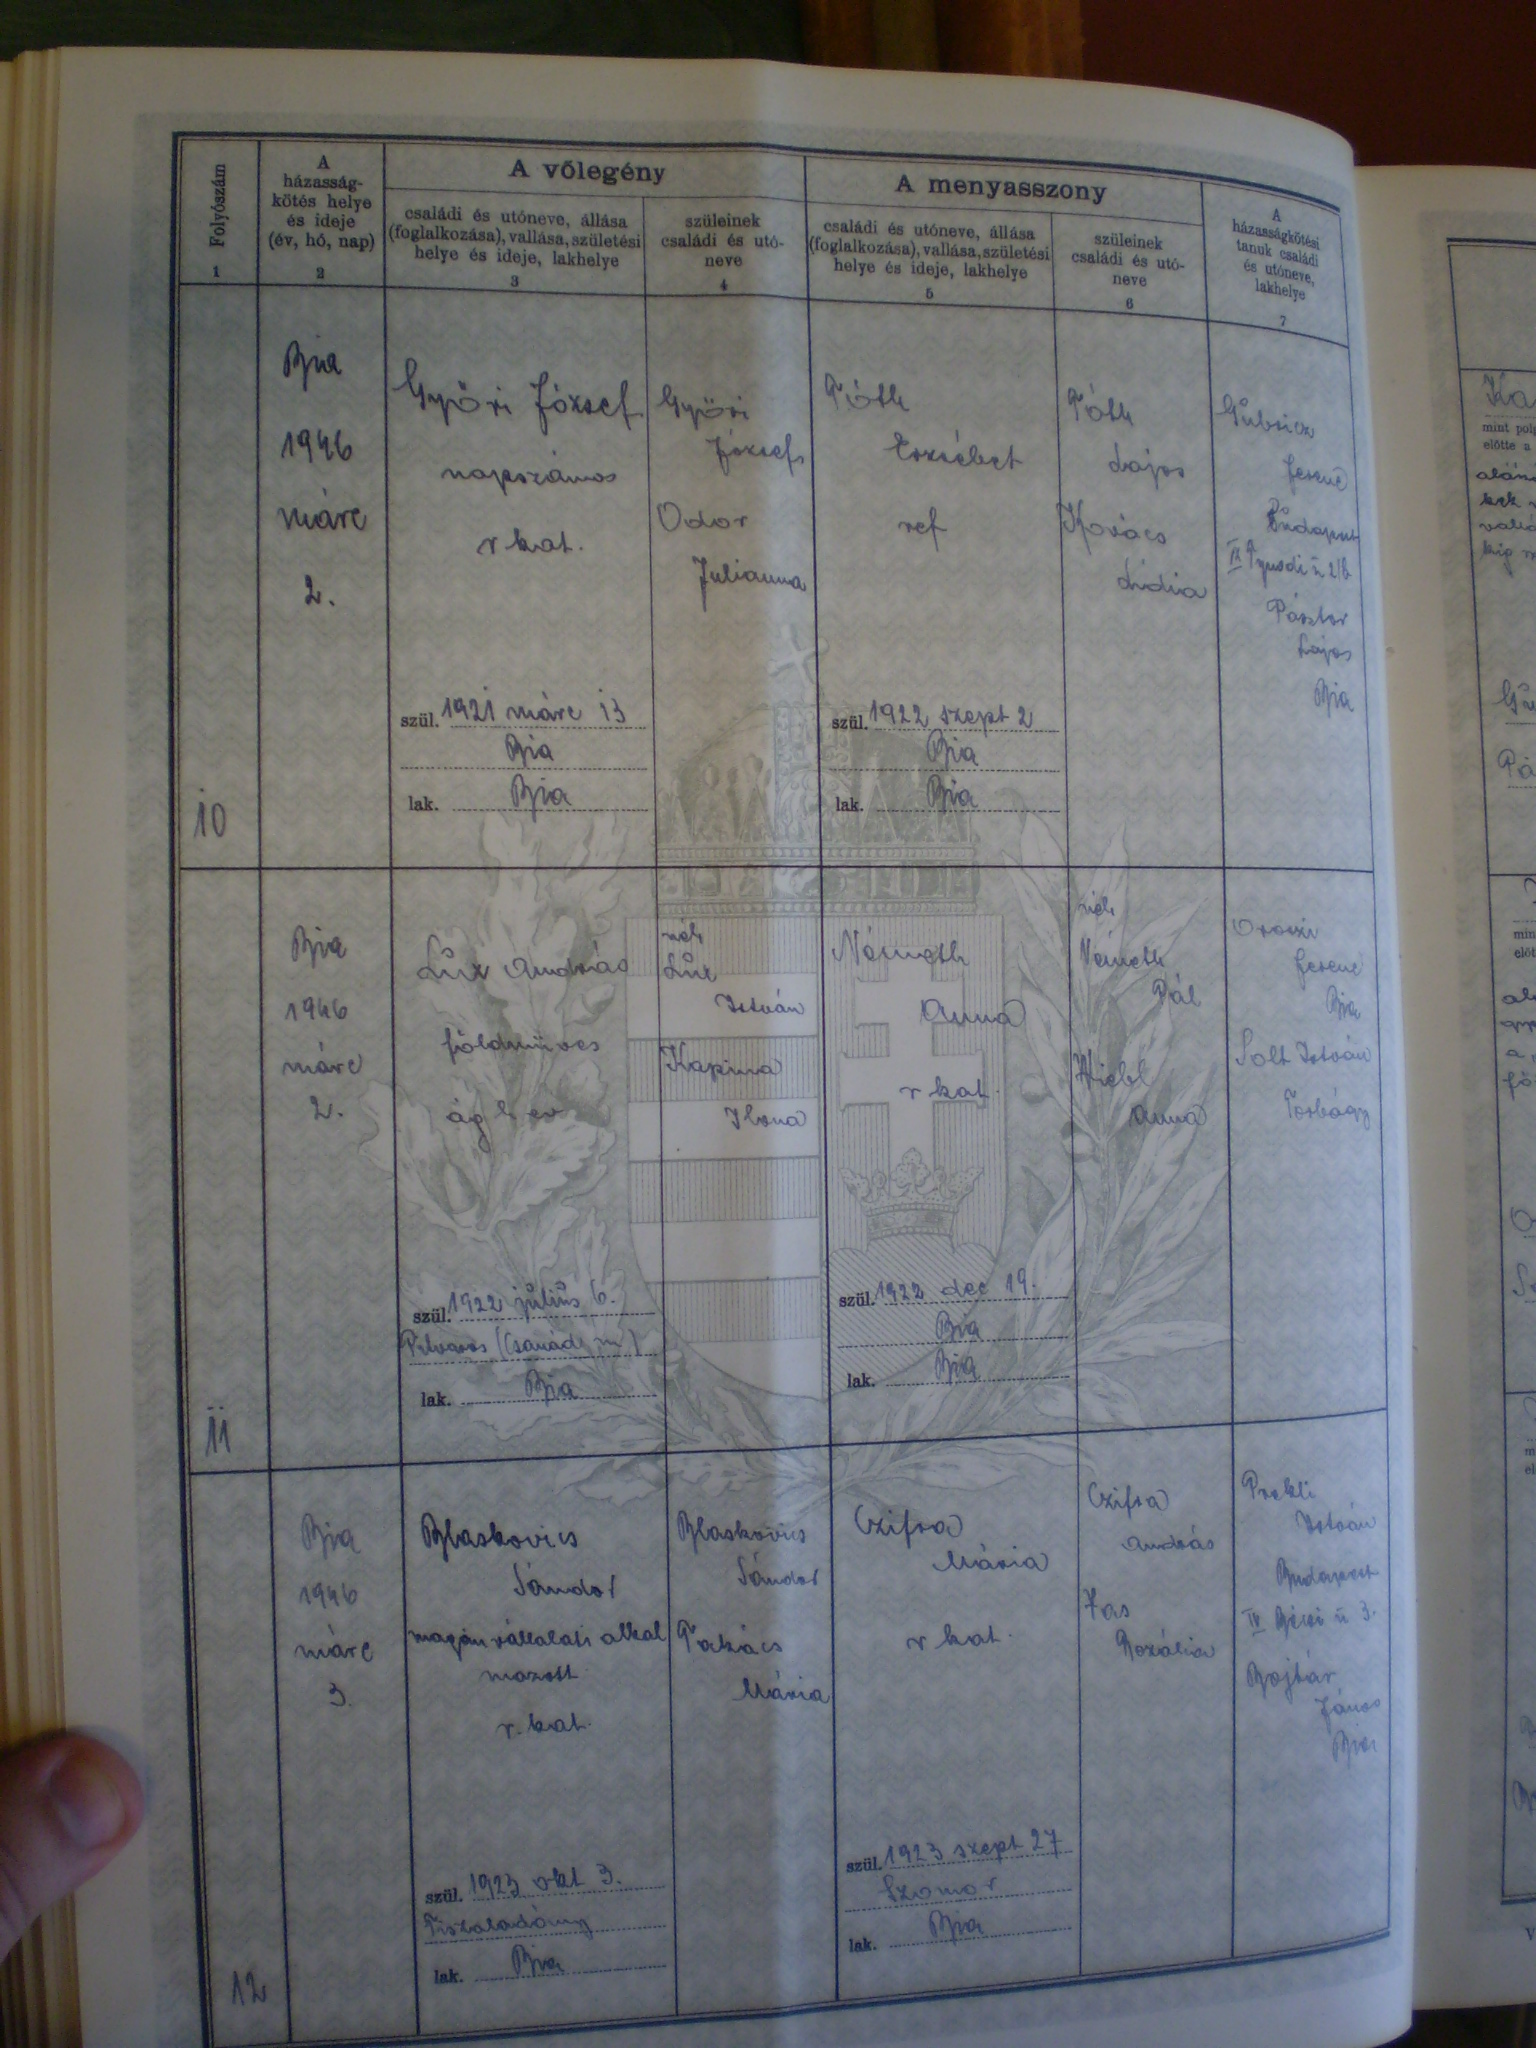 Folyószám
1
A
házasság-
kötés helye
és ideje
(év, hó, nap)
2
A vőlegény
családi és utóneve, állása
(foglalkozása), vallása, születési
helye és ideje, lakhelye
3
szüleinek
családi és utó-
neve
4
A menyasszony
családi és utóneve, állása
(foglalkozása), vallása, születési
helye és ideje, lakhelye
5
szüleinek
családi és utó-
neve
6
A
házasságkötési
tanuk családi
és utóneve,
lakhelye
7
10
Bia
1946
márc
2.
Győri József
napszámos
r kat.
szül. 1921 márc 13
Bia
lak. Bia
Győri
József
Odor
Julianna
Tóth
Erzsébet
ref
szül. 1922 szept 2
Bia
lak. Bia
Tóth
Lajos
Kovács
Lidia
Gubricz
Ferenc
Budapest
IX
Pásztor
Lajos
Bia
11
Bia
1946
márc
2.
Lux András
földmüves
ág h ev
szül. 1922 július 6.
Pitvaros (Csanád m)
lak. Bia
néh
Lux
István
Kapina
Ilona
Németh
Anna
r kat.
szül. 1922 dec 19.
Bia
lak. Bia
néh
Németh
Pál
Hiebl
Anna
Oroszi
Ferenc
Bia
Solt István
Torbágy
12
Bia
1946
márc
3.
Blaskovics
Sándor
magánvállalati alkal
mazott
r. kat.
szül. 1923 okt 3.
Tiszaladány
lak. Bia
Blaskovics
Sándor
Takács
Mária
Czifra
Mária
r kat.
szül. 1923 szept 27
Szomor
lak. Bia
Czifra
András
Vas
Rozália
Prekli
István
Budapest
IV Bécsi u 3.
Bojtár
János
Bia